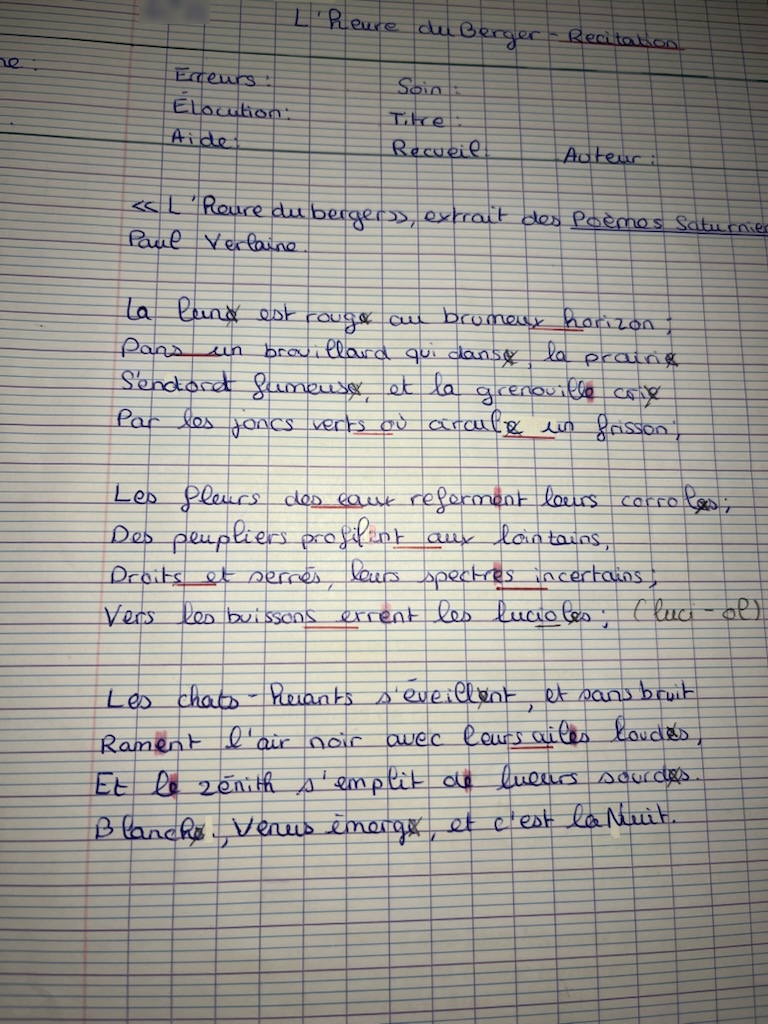 L'Heure du Berger - Recitation
ne :
Erreurs : Soin :
Élocution : Titre :
Aide : Recueil : Auteur :
<< L'Heure du berger >>, extrait des Poèmes Saturnie
Paul Verlaine.
La lune est rouge au brumeux horizon ;
Dans un brouillard qui danse, la prairie
S'endort fumeuse, et la grenouille crie
Par les joncs verts où circule un frisson ;
Les fleurs des eaux referment leurs corroles ;
Des peupliers profilent aux lointains,
Droits et serrés, leurs spectres incertains ;
Vers les buissons errent les lucioles ; (luci-ol)
Les chats-Huants s'éveillent, et sans bruit
Rament l'air noir avec leurs ailes loudes,
Et le zénith s'emplit de lueurs sourdes.
Blanche., Venus émerge, et c'est la Nuit.